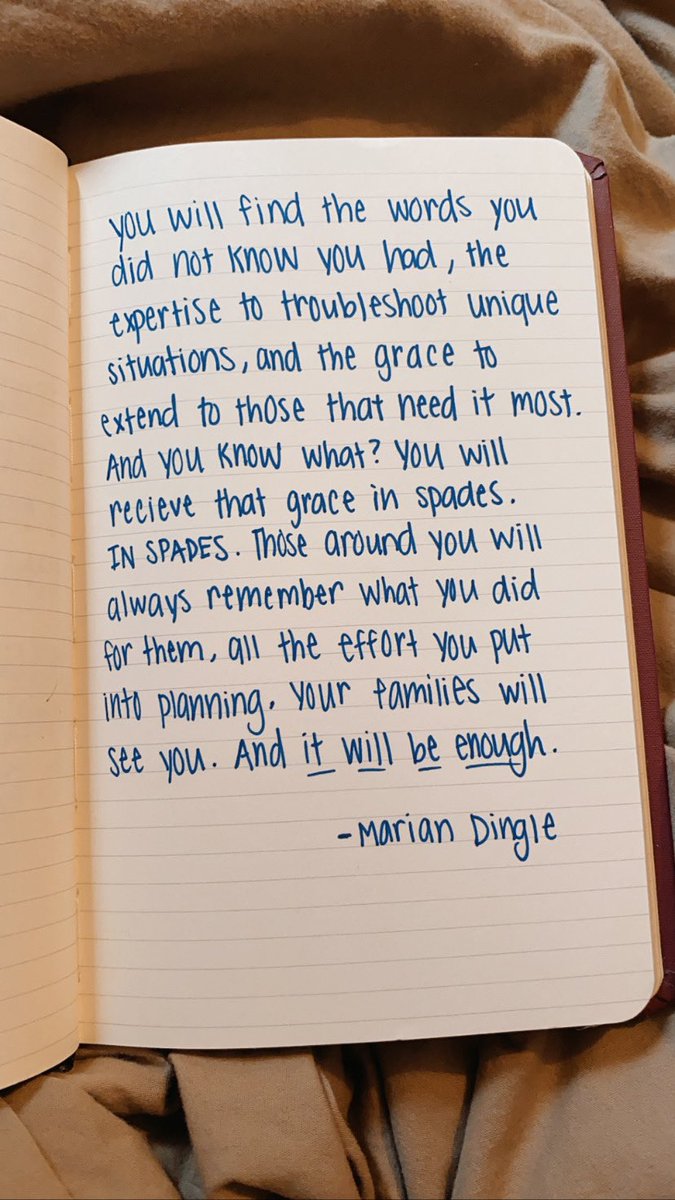 you will find the words you
did not know you had, the
expertise to troubleshoot unique
situations, and the grace to
extend to those that need it most.
And you know what? you will
recieve that grace in spades.
IN SPADES. Those around you will
always remember what you did
for them, all the effort you put
into planning. your families will
see you. And it will be enough.
-Marian Dingle